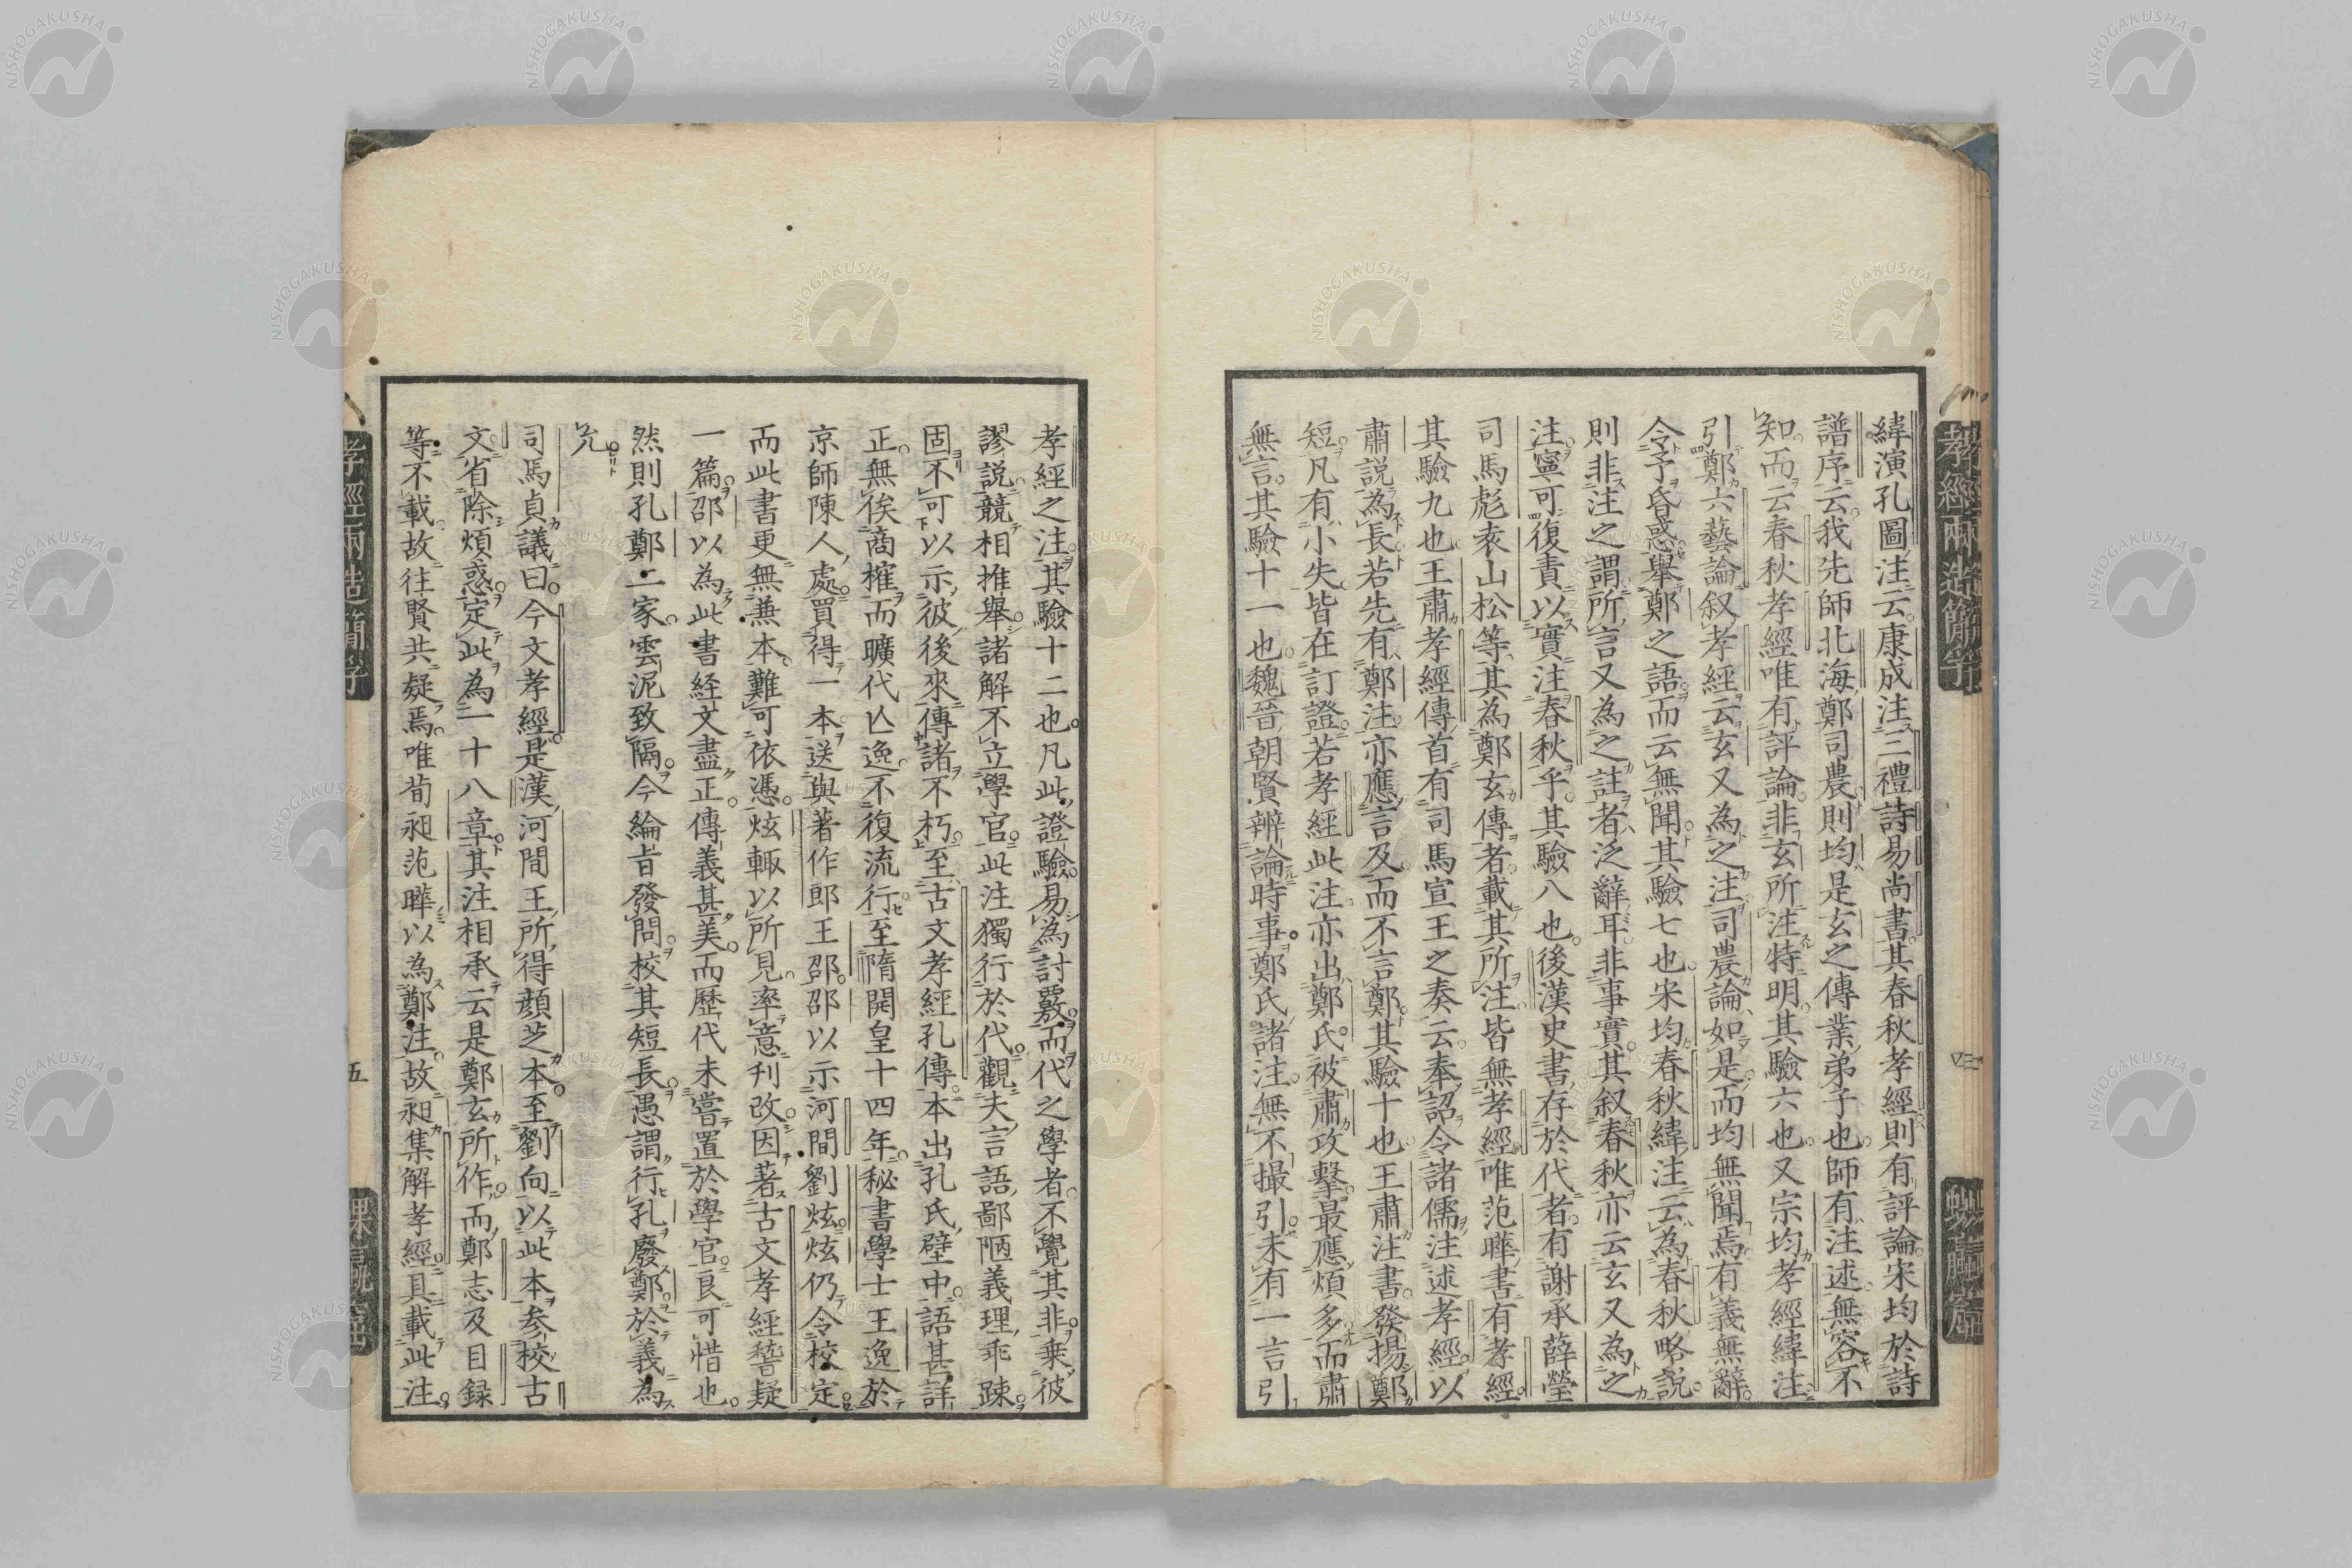 緯演孔圖注云康成注三禮詩易尚書其春秋孝經則有評論宋均於詩
譜序云我先師北海鄭司農則均是玄之傳業弟子也師有注述無容不
知而云春秋孝經唯有評論非玄所注特明其驗六也又宗均孝經緯注
引鄭六藝論叙孝經云玄又為之注司農論如是而均無聞焉有義無辭
令予昏惑舉鄭之語而云無聞其驗七也宋均春秋緯注云為春秋略說
則非注之謂所言又為之註者泛辭耳非事實其叙春秋亦云玄又為之
注寧可復責以實注春秋乎其驗八也後漢史書存於代者有謝承薛瑩
司馬彪袁山松等其為鄭玄傳者載其所注皆無孝經唯范曄書有孝經
其驗九也王肅孝經傳首有司馬宣王之奏云奉詔令諸儒注述孝經以
肅說為長若先有鄭注亦應言及而不言鄭其驗十也王肅注書發揚鄭
短凡有小失皆在訂證若孝經此注亦出鄭氏被肅攻擊最應煩多而肅
無言其驗十一也魏晉朝賢辨論時事鄭氏諸注無不撮引未有一言引
孝經之注其驗十二也凡此證驗易為討覈而代之學者不覺其非乗彼
謬說競相推舉諸解不立學官此注獨行於代觀夫言語鄙陋義理乖踈
固不可以示彼後來傳諸不朽至古文孝經孔傳本出孔氏壁中語甚詳
正無俟商榷而曠代亾逸不復流行至隋開皇十四年秘書學士王逸於
京師陳人處買得一本送與著作郎王邵邵以示河間劉炫炫仍令校定
而此書更無兼本難可依憑炫輒以所見率意刋改因著古文孝經誓疑
一篇邵以為此書経文盡正傳義甚美而歷代未嘗置於學官良可惜也
然則孔鄭二家雲泥致隔今綸旨發問校其短長愚謂行孔廢鄭於義為
允
司馬貞議曰今文孝經是漢河間王所得顔芝本至劉向以此本参校古
文省除煩惑定此為一十八章其注相承云是鄭玄所作而鄭志及目録
等不載故往賢共疑焉唯荀昶范曄以為鄭注故昶集解孝經具載此注
孝經兩造簡孚
四
孝經兩造簡孚
五